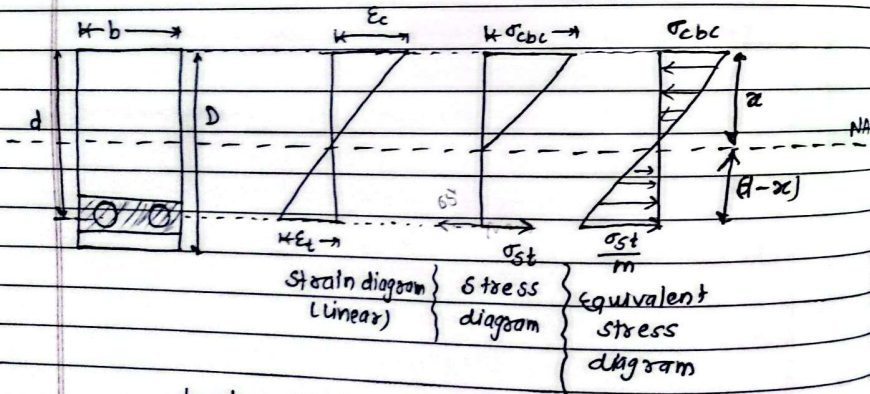 b
εc
σcbc
σcbc
d
D
x
NA
(d-x)
εt
σst
σst
m
Strain diagram
(linear)
Stress
diagram
Equivalent
stress
diagram